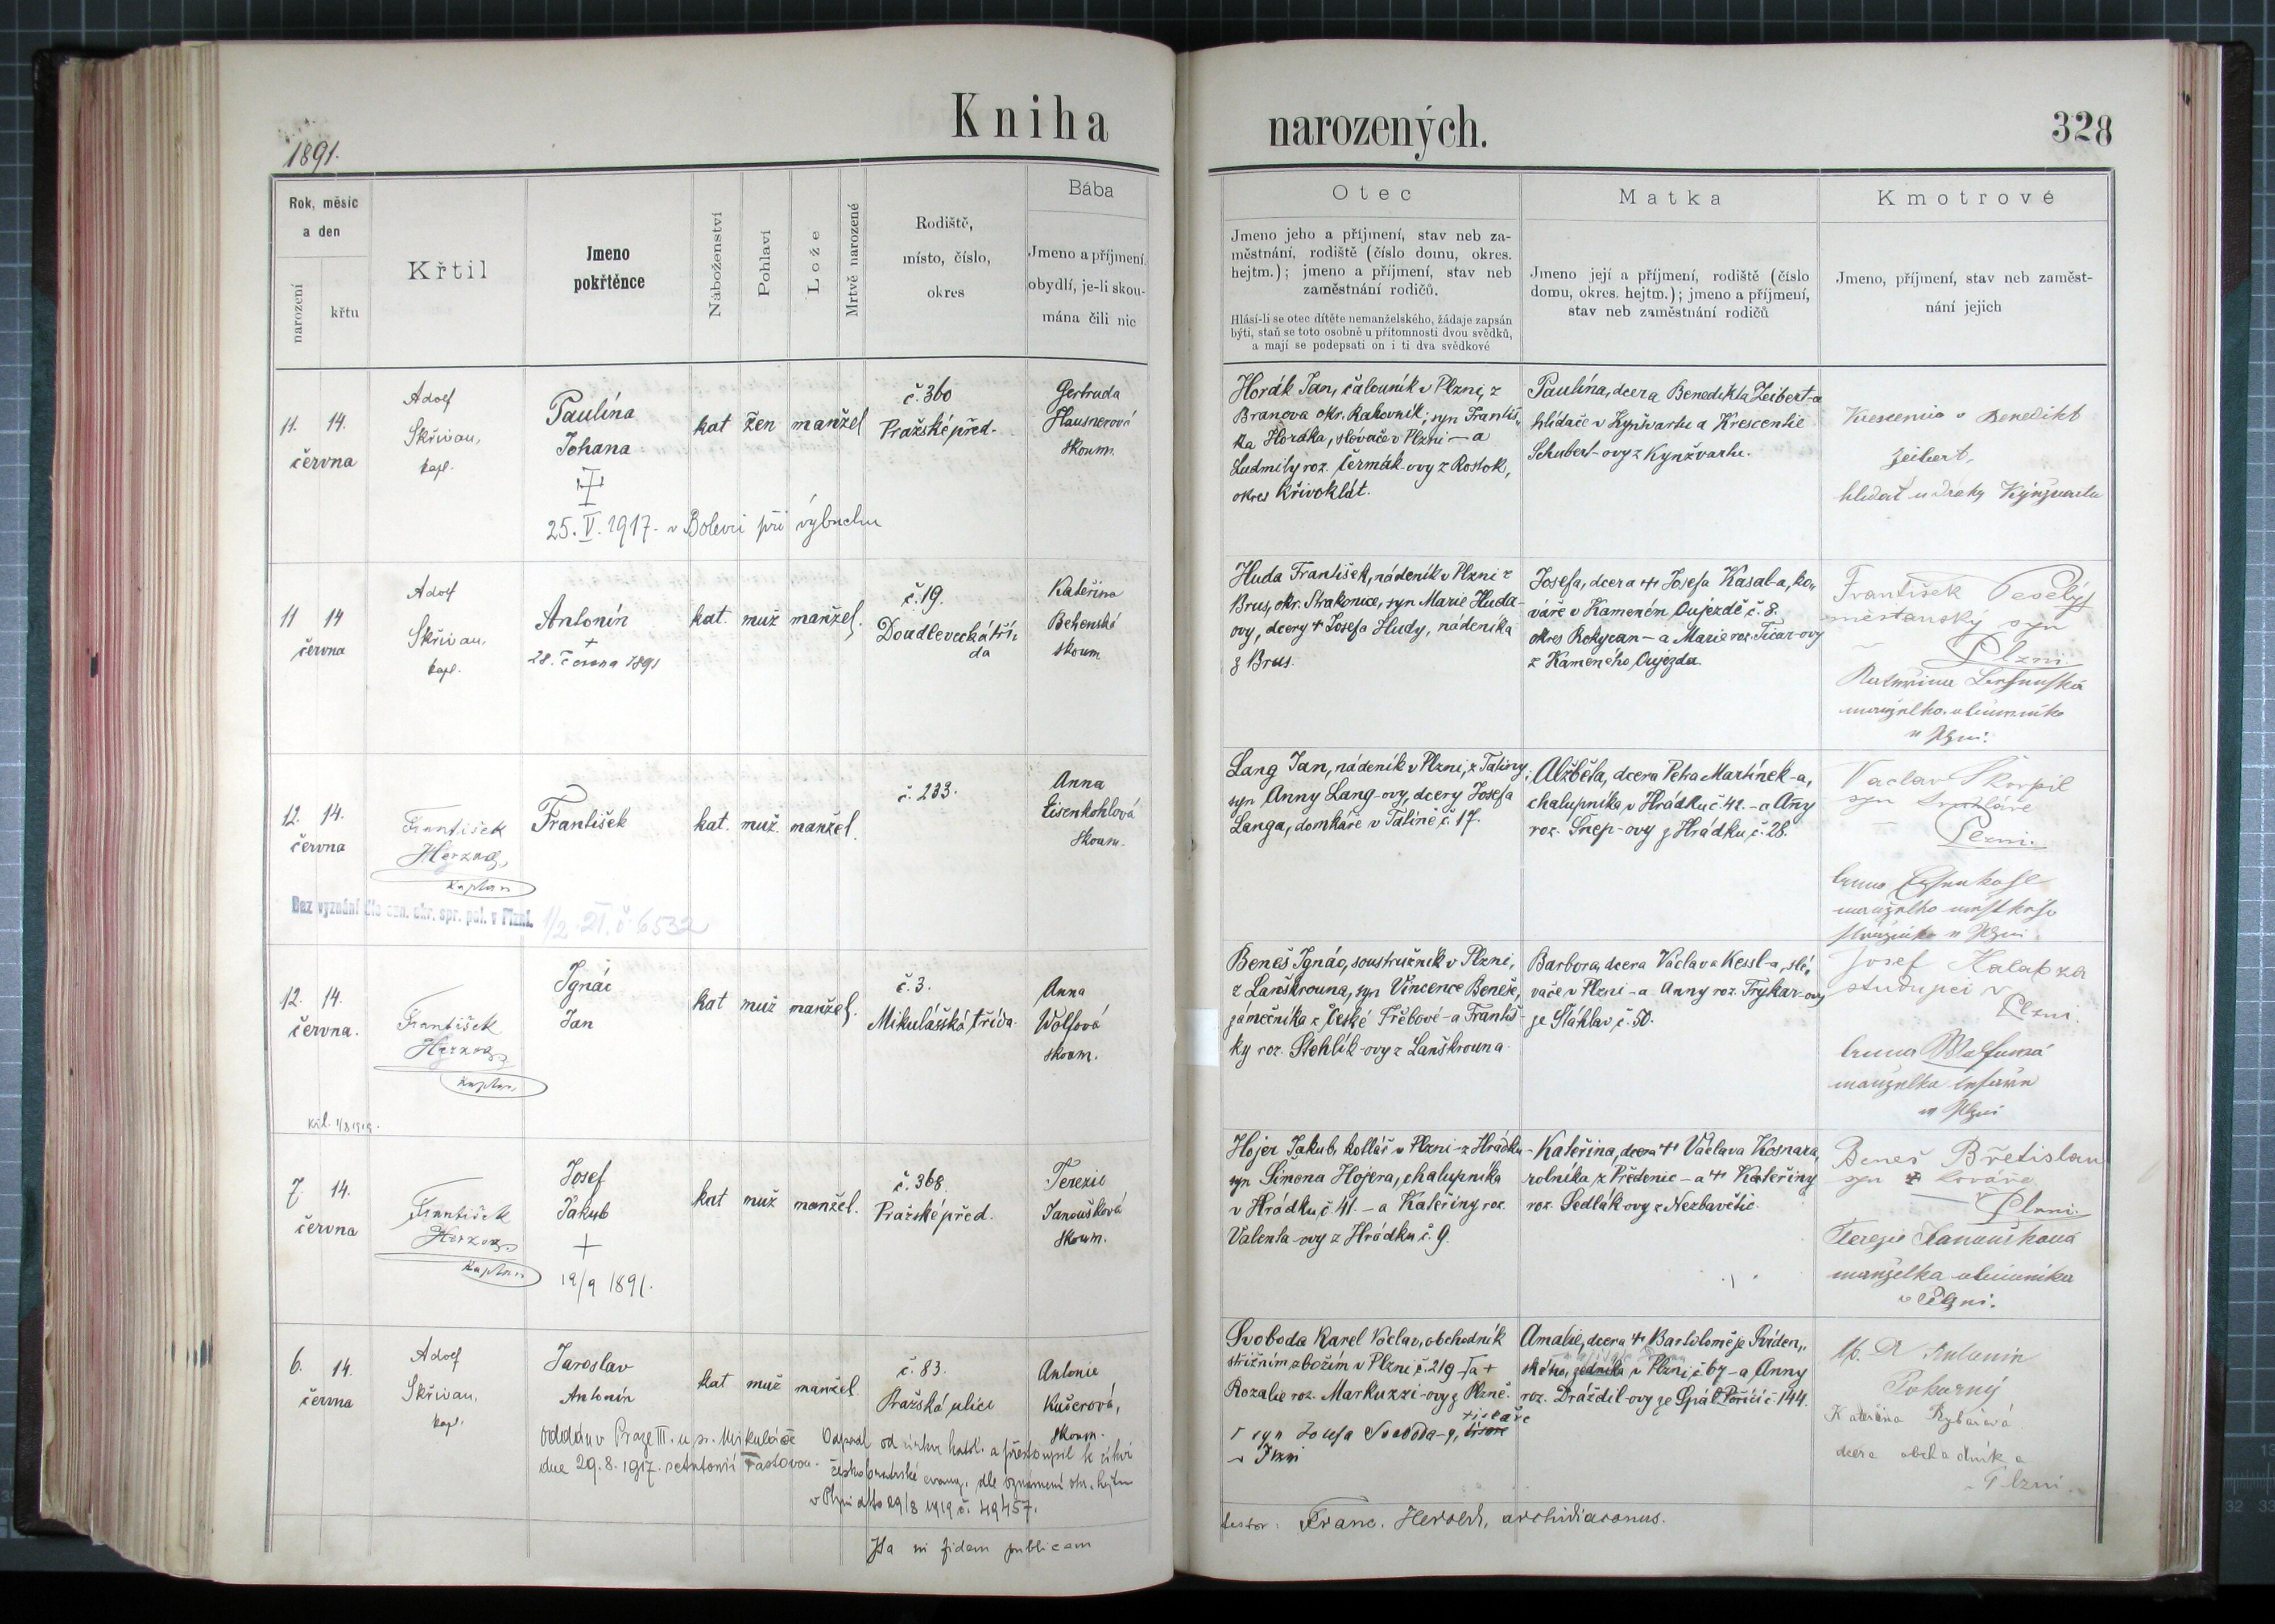 1891.
Kniha
narozených.
328
Rok, měsíc
a den
narození
křtu
Křtil
Jmeno
pokřtěnce
Náboženství
Pohlaví
Lože
Mrtvě narozené
Rodiště,
místo, číslo,
okres
Bába
Jmeno a příjmení,
obydlí, je-li skou-
mána čili nic
Otec
Jmeno jeho a příjmení, stav neb za-
městnání, rodiště (číslo domu, okres.
hejtm.); jmeno a příjmení, stav neb
zaměstnání rodičů.
Hlásí-li se otec dítěte nemanželského, žádaje zapsán
býti, staň se toto osobně u přítomnosti dvou svědků,
a mají se podepsati on i ti dva svědkové
Matka
Jmeno její a příjmení, rodiště (číslo
domu, okres. hejtm.); jmeno a příjmení,
stav neb zaměstnání rodičů
Kmotrové
Jmeno, příjmení, stav neb zaměst-
nání jejich
11. 14.
června
Adolf
Skřivan,
kapl.
Paulína
Johana
25. V. 1917. v Bolevci při výbuchu
kat žen manžel
č. 360
Pražské před.
Gertruda
Hausnerová
skoum.
Horák Jan, čalouník v Plzni, z
Branova okr. Rakovník; syn Františ-
ka Horáka, slévače v Plzni - a
Ludmily roz. Čermák-ovy z Rostok,
okres Křivoklát.
Paulína, dcera Benedikta Zeibert-a
hlídače v Kynžvartu a Krescentie
Schubert-ovy z Kynžvartu.
Krescencia a Benedikt
Zeibert,
hlídač u dráhy Kynžvartu
11 14
června
Adolf
Skřivan,
kapl.
Antonín
+
28. června 1891
kat. muž manžel.
č. 19.
Doudlevecká tří-
da
Kateřina
Behenská
skoum
Huda František, nádeník v Plzni z
Brus, okr. Strakonice, syn Marie Huda-
ovy, dcery + Josefa Hudy, nádeníka
z Brus.
Josefa, dcera + Josefa Kasal-a, ko-
váře v Kameném Oujezdě č. 8.
okres Rokycan - a Marie roz. Ticar-ovy
z Kameného Oujezda.
František Veselý
měšťanský syn
Plzni
Kateřina
v Plzni.
12. 14.
června
František
Herzog,
kaplan
František
kat. muž. manžel.
č. 233.
Anna
Eisenkohlová
skoum.
Bez vyznání dle ozn. okr. spr. pol. v Plzni. 1/2. 21. č 6532
Lang Jan, nádeník v Plzni, z Taliny,
syn Anny Lang-ovy, dcery Josefa
Langa, domkáře v Talině č. 17.
Alžběta, dcera Petra Martínek-a,
chalupníka, v Hrádku č. 42. - a Anny
roz. Šnep-ovy z Hrádku, č. 28.
Vaclav Škorpil
syn
Plzni.
v Plzni
12. 14.
června.
František
Herzog
kaplan,
Ignác
Jan
kat muž manžel.
č. 3.
Mikulášská třída
Anna
Wolfová
skoum.
Beneš Ignác, soustružník v Plzni,
z Lanškrouna, syn Vincence Beneše,
zámečníka z České Třebové - a Františ-
ky roz. Stehlík-ovy z Lanškrouna.
Barbora, dcera Václava Kessl-a, slé-
vače v Plzni - a Anny roz. Trykar-ovy
ze Štáhlav, č. 50.
Josef
studující v
Plzni.
manželka
v Plzni
7. 14.
června
František
Herzog
kaplan
Josef
Jakub
+
19/9 1891.
kat muž manžel.
č. 368.
Pražské před.
Terezie
Janoušková
skoum.
Hojer Jakub, kotlář v Plzni - z Hrádku
syn Šimona Hojera, chalupníka
v Hrádku, č. 41. - a Kateřiny roz.
Valenta-ovy z Hrádku č. 9.
Kateřina, dcera + Václava Kosnara,
rolníka, z Předenic - a + Kateřiny
roz. Sedlák-ovy z Nezbavětic.
Beneš Břetislav
syn kováře
v Plzni.
Terezie Janoušková
manželka
v Plzni.
6. 14.
června
Adolf
Skřivan,
kapl.
Jaroslav
Antonín
kat muž manžel.
č. 83.
Pražská ulice
Antonie
Kučerová,
skoum.
oddán v Praze III. u sv. Mikuláše
dne 29. 8. 1917. s Antonií
Odpadl od církve katol. a přestoupil k církvi
českobratrské evang. dle oznámení okr. hejtm.
v Plzni dto 29/8 1919 č. 49457.
Svoboda Karel Václav, obchodník
střižním zbožím v Plzni č. 219 - a +
Rozalie roz. Markuzzi-ovy z Plzně.
syn Josefa Svoboda-y, tiskaře
v Plzni
Amalie, dcera + Bartoloměje Sviden-
ského, v Plzni, č. 67 - a Anny
roz. Dráždil-ovy ze Spál. Poříčí č. 144.
Antonín
Pokorný
Kateřina Rybářová
dcera obchodníka
v Plzni.
Ita in fidem publicam
testor: Franc. Herold, archidiaconus.